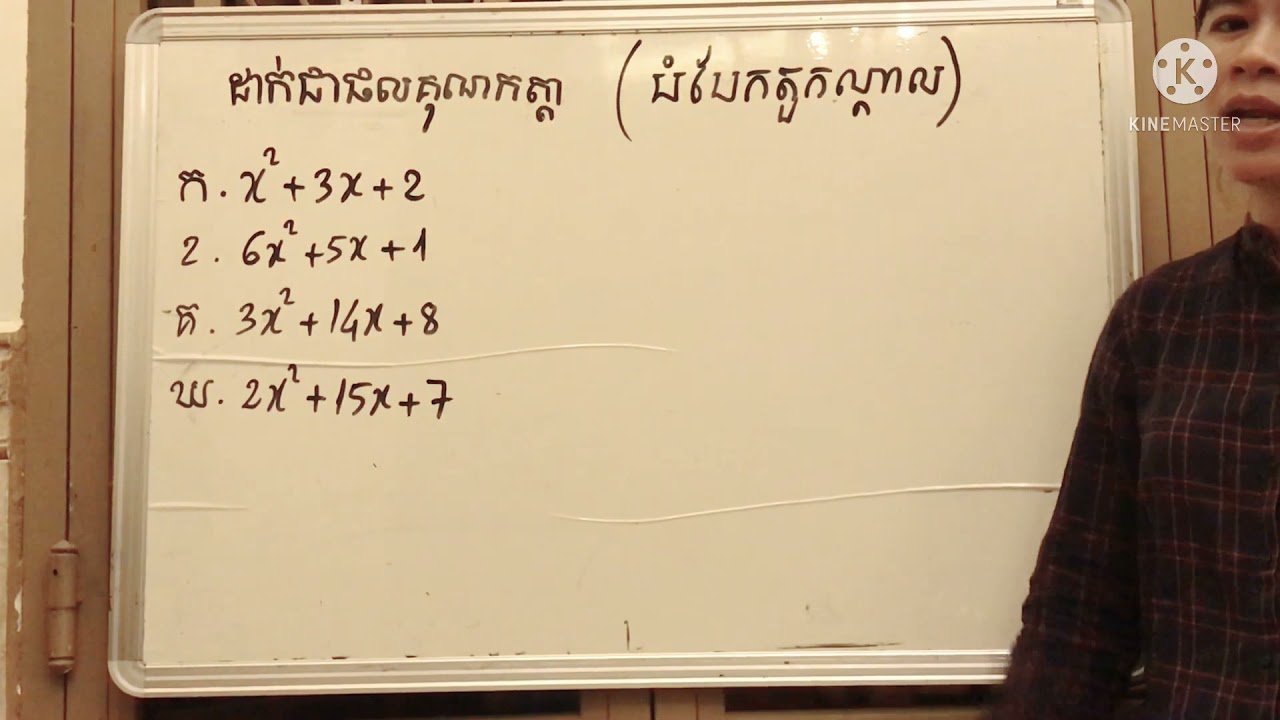 ដាក់ជាផលគុណកត្តា (បំបែកតួកណ្តាល)
ក. x² + 3x + 2
ខ. 6x² + 5x + 1
គ. 3x² + 14x + 8
ឃ. 2x² + 15x + 7
K
KINEMASTER